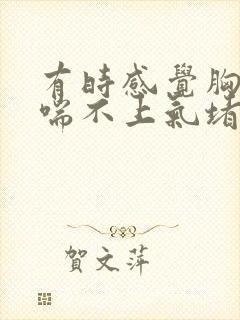 有時感覺胸
喘不上氣堵
賀文萍